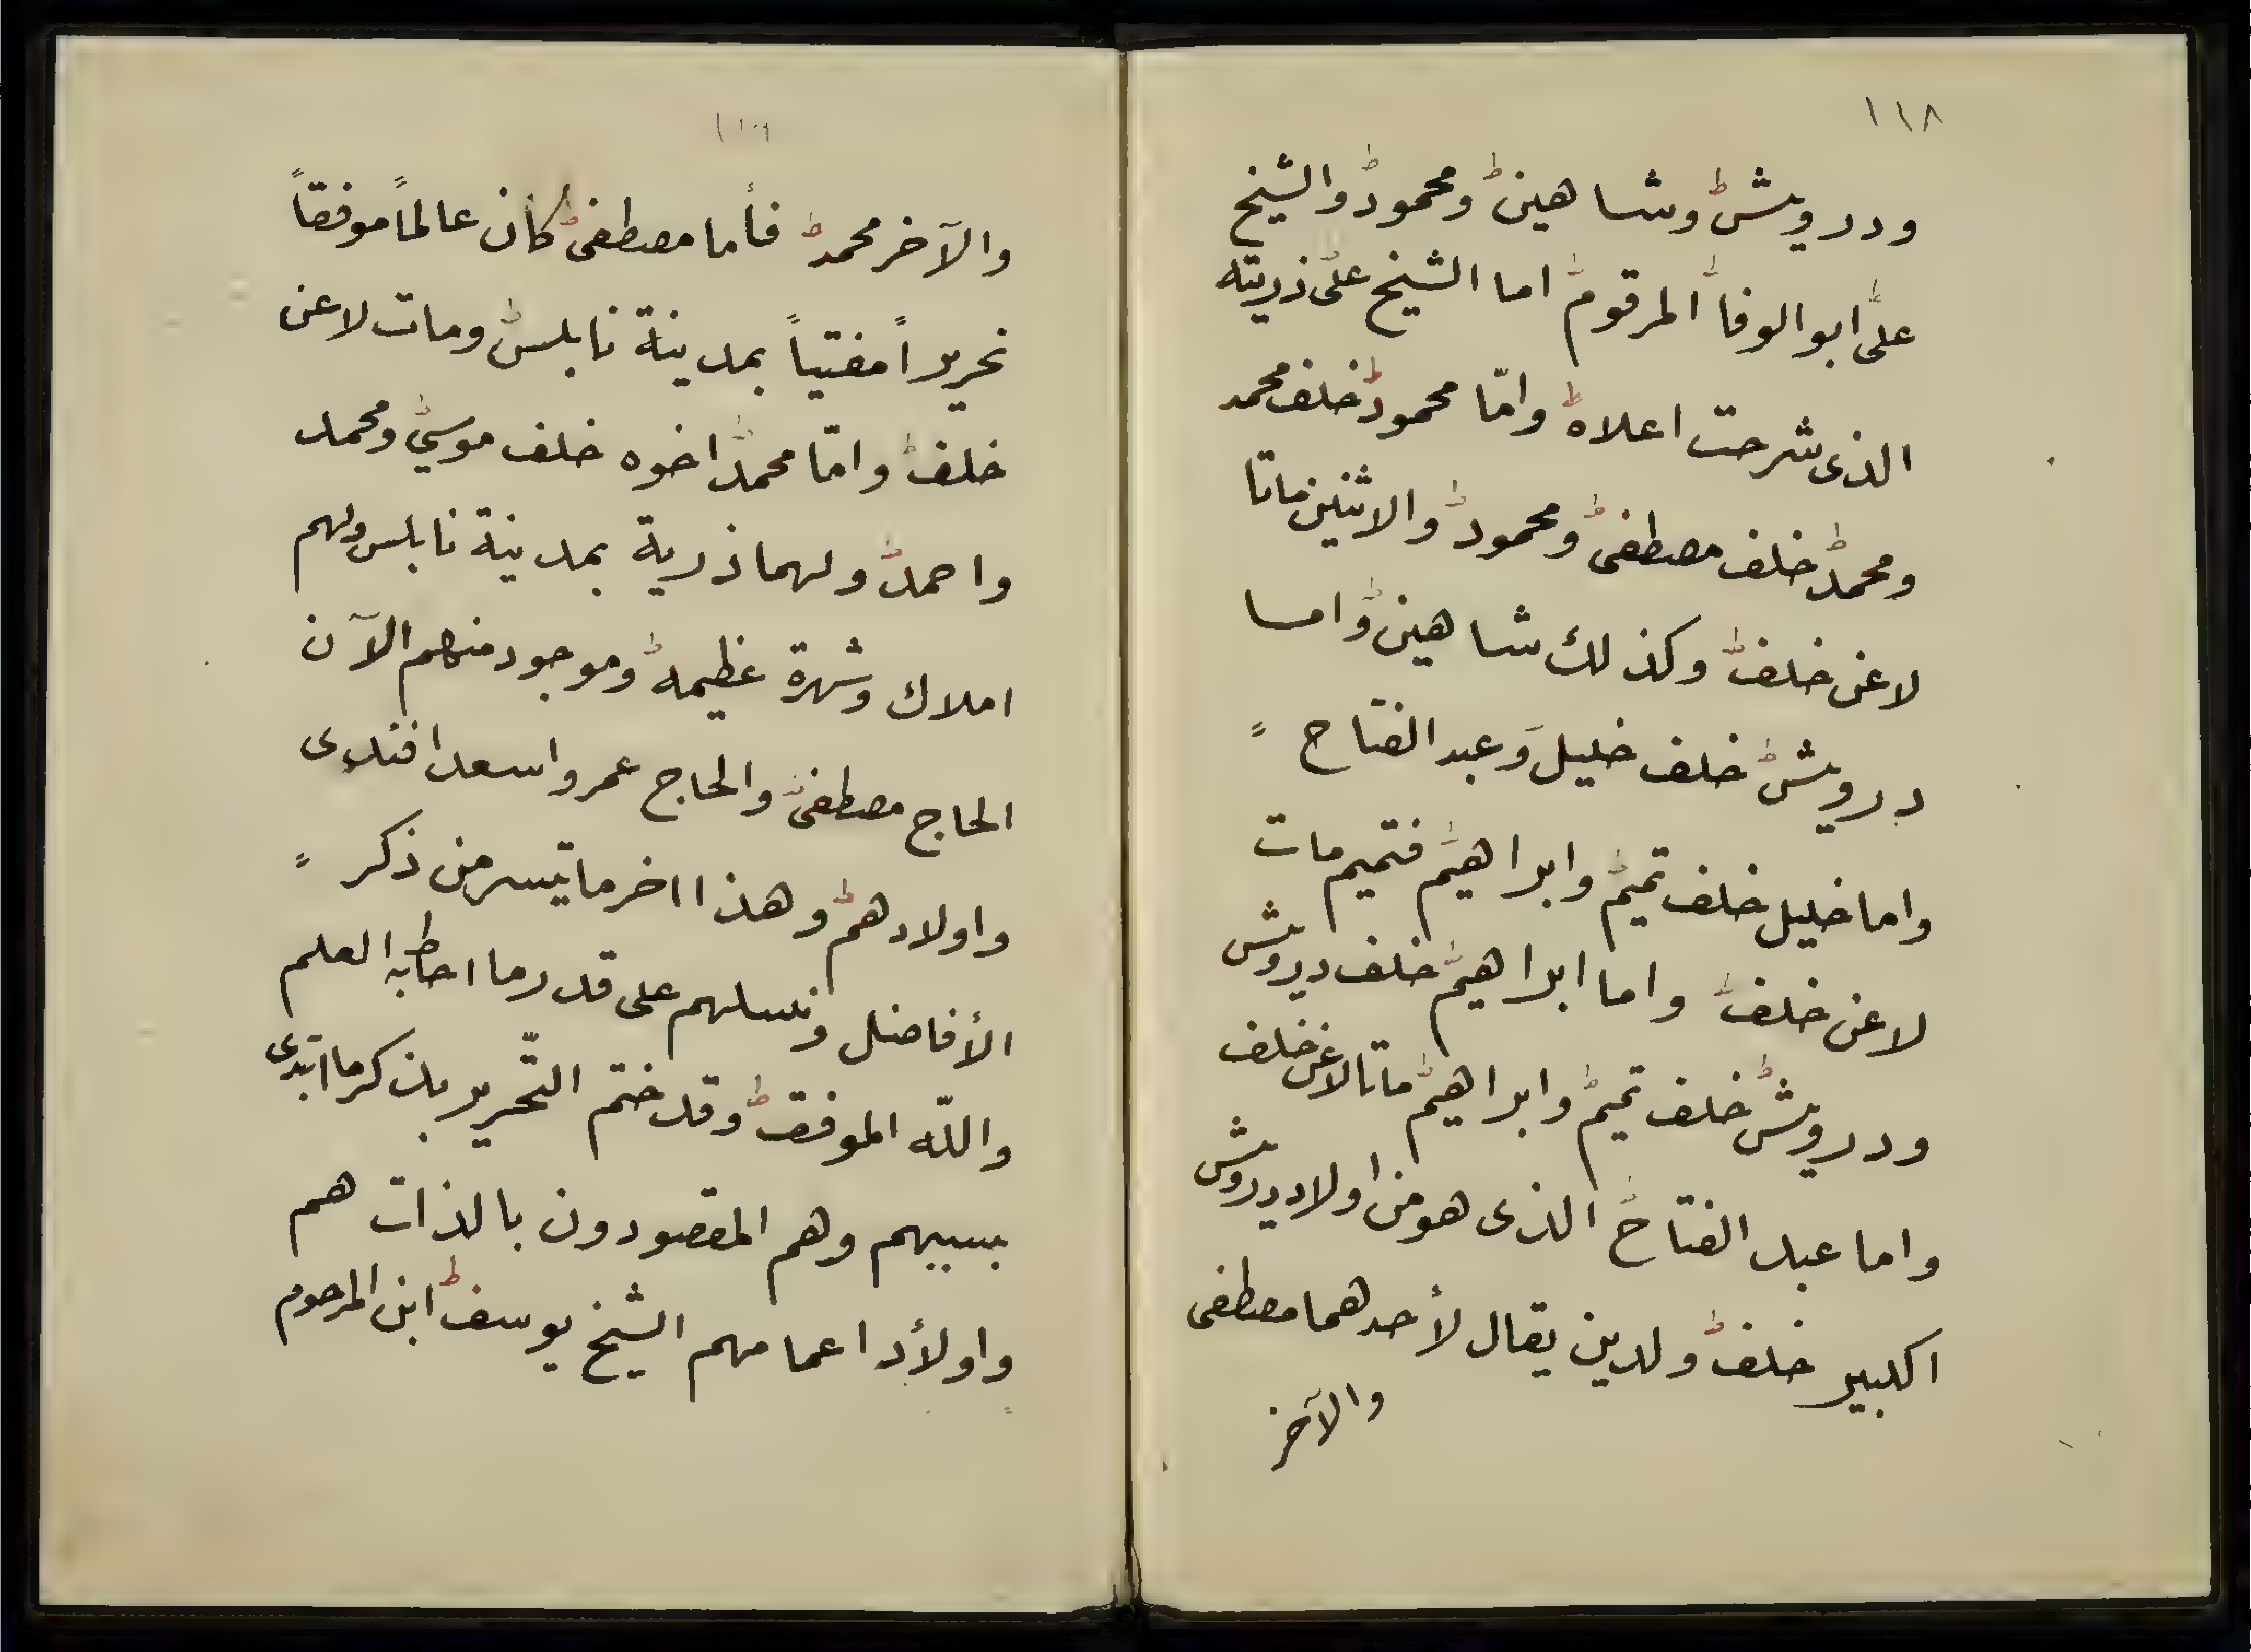 ١١٨
ودرويش وشاهين ومحمود والشيخ
على ابو الوفا المرقوم اما الشيخ على ذريته
الذى شرحت اعلاه وامّا محمود خلف محمد
ومحمد خلف مصطفى ومحمود والاثنين ماتا
لاعن خلف وكذلك شاهين وامسا
درويش خلف خليل وعبد الفتاح
واما خليل خلف تميم وابراهيم فتميم مات
لاعن خلف واما ابراهيم خلف درويش
ودرويش خلف تميم وابراهيم ماتا لاعن خلف
واما عبد الفتاح الذى هو من اولاد درويش
اكبير خلف ولدين يقال لأحدهما مصطفى
والآخر
١١٩
والآخر محمد فأما مصطفى كان عالماً موفقاً
نحريراً مفتياً بمدينة نابلس ومات لاعن
خلف وامّا محمد اخوه خلف موسي ومحمد
واحمد ولهما ذرية بمدينة نابلس ولهم
املاك وشهرة عظيمه وموجود منهم الآن
الحاج مصطفى والحاج عمر واسعد افندى
واولادهم وهذا اخر ما تيسر من ذكر
الأفاضل ونسلهم على قدر ما احاط به العلم
والله الموفق وقد ختم التّحرير بذكر ما ابتدى
بسببهم وهم المقصودون بالذات هم
واولأد اعمامهم الشيخ يوسف ابن المرحوم